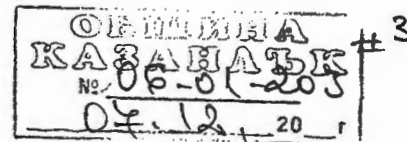 ОБЩИНА # 3
КАЗАНЛЪК
№ 06-01-205
07.12. 20 г